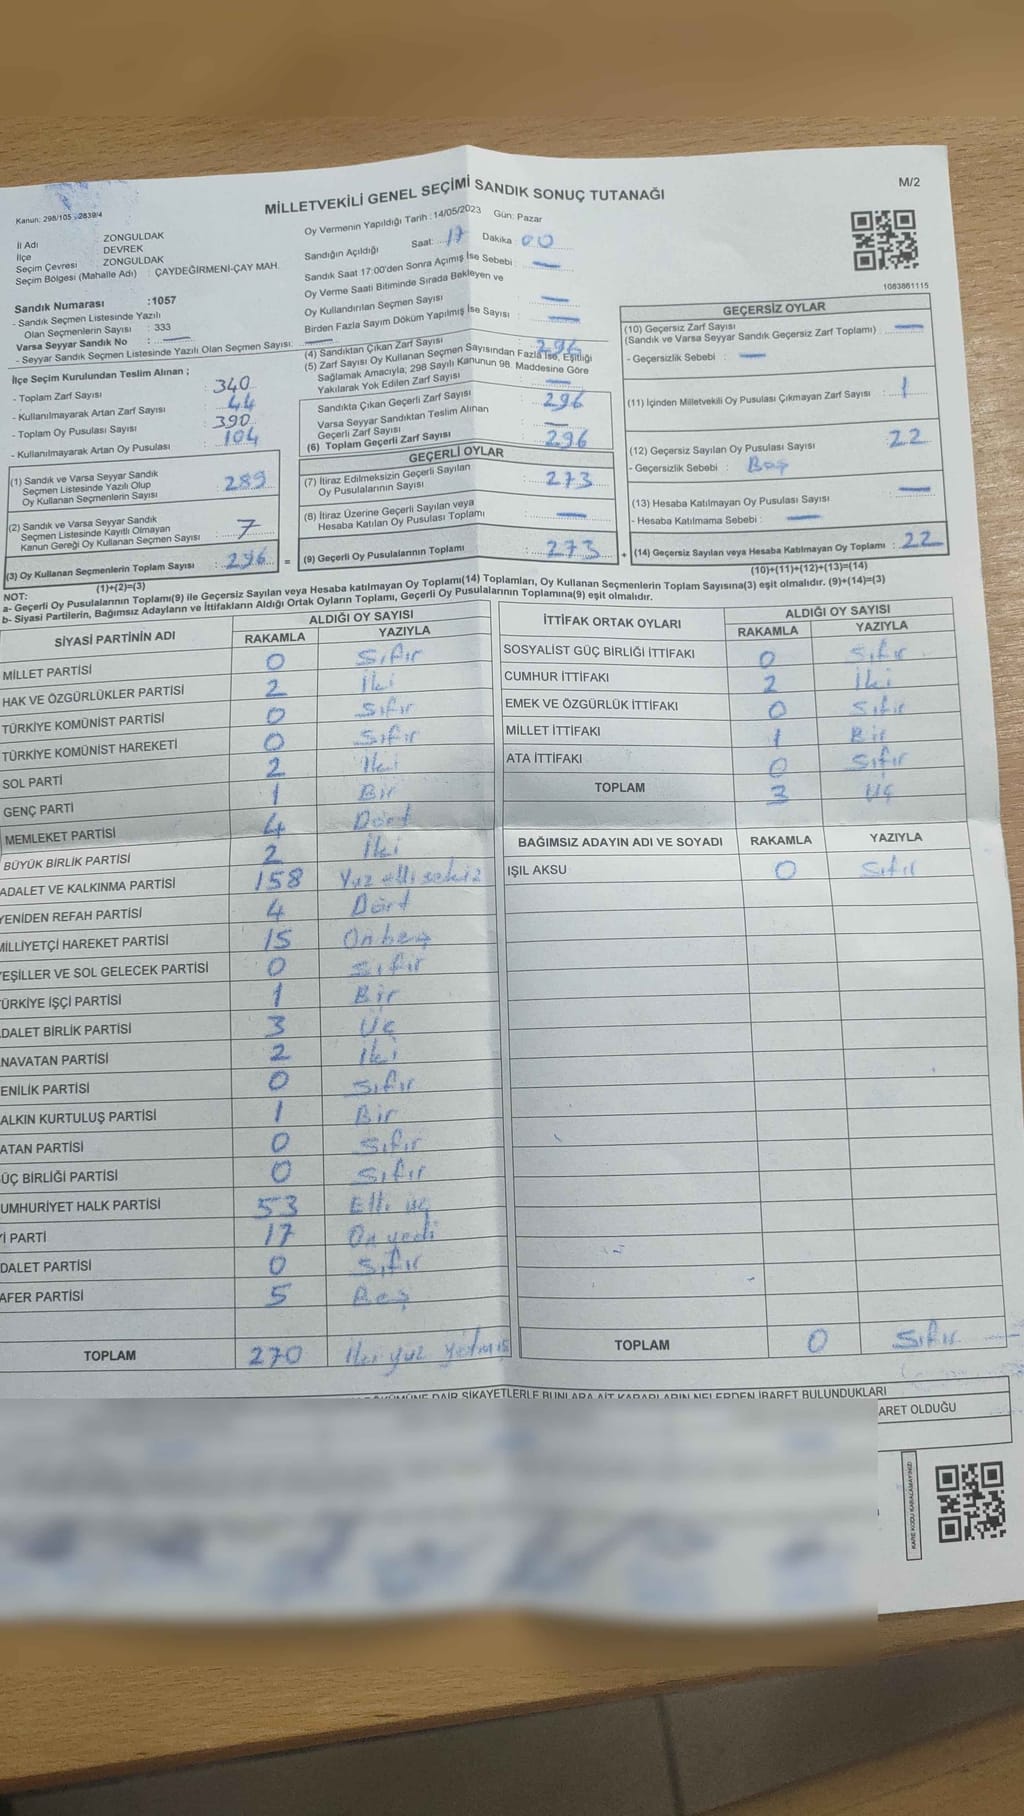 M/2
MİLLETVEKİLİ GENEL SEÇİMİ SANDIK SONUÇ TUTANAĞI
Kanun: 298/105 - 2839/4
İl Adı ZONGULDAK
İlçe DEVREK
Seçim Çevresi ZONGULDAK
Seçim Bölgesi (Mahalle Adı) : ÇAYDEĞİRMENİ-ÇAY MAH.
Sandık Numarası :1057
- Sandık Seçmen Listesinde Yazılı
Olan Seçmenlerin Sayısı : 333
Varsa Seyyar Sandık No :
- Seyyar Sandık Seçmen Listesinde Yazılı Olan Seçmen Sayısı:
Oy Vermenin Yapıldığı Tarih : 14/05/2023 Gün: Pazar
Sandığın Açıldığı Saat: 17 Dakika : 00
Sandık Saat 17:00'den Sonra Açımış İse Sebebi :
Oy Verme Saati Bitiminde Sırada Bekleyen ve
Oy Kullandırılan Seçmen Sayısı
Birden Fazla Sayım Döküm Yapılmış İse Sayısı :
1083861115
İlçe Seçim Kurulundan Teslim Alınan ;
- Toplam Zarf Sayısı : 340
- Kullanılmayarak Artan Zarf Sayısı : 44
- Toplam Oy Pusulası Sayısı : 390
- Kullanılmayarak Artan Oy Pusulası : 104
(1) Sandık ve Varsa Seyyar Sandık
Seçmen Listesinde Yazılı Olup
Oy Kullanan Seçmenlerin Sayısı : 289
(2) Sandık ve Varsa Seyyar Sandık
Seçmen Listesinde Kayıtlı Olmayan
Kanun Gereği Oy Kullanan Seçmen Sayısı : 7
(3) Oy Kullanan Seçmenlerin Toplam Sayısı : 296
(1)+(2)=(3)
(4) Sandıktan Çıkan Zarf Sayısı : 296
(5) Zarf Sayısı Oy Kullanan Seçmen Sayısından Fazla İse, Eşitliği
Sağlamak Amacıyla, 298 Sayılı Kanunun 98. Maddesine Göre
Yakılarak Yok Edilen Zarf Sayısı
Sandıkta Çıkan Geçerli Zarf Sayısı : 296
Varsa Seyyar Sandıktan Teslim Alınan
Geçerli Zarf Sayısı
(6) Toplam Geçerli Zarf Sayısı : 296
GEÇERLİ OYLAR
(7) İtiraz Edilmeksizin Geçerli Sayılan
Oy Pusulalarının Sayısı : 273
(8) İtiraz Üzerine Geçerli Sayılan veya
Hesaba Katılan Oy Pusulası Toplamı :
= (9) Geçerli Oy Pusulalarının Toplamı : 273 +
GEÇERSİZ OYLAR
(10) Geçersiz Zarf Sayısı
(Sandık ve Varsa Seyyar Sandık Geçersiz Zarf Toplamı) :
- Geçersizlik Sebebi :
(11) İçinden Milletvekili Oy Pusulası Çıkmayan Zarf Sayısı : 1
(12) Geçersiz Sayılan Oy Pusulası Sayısı : 22
- Geçersizlik Sebebi : Boş
(13) Hesaba Katılmayan Oy Pusulası Sayısı
- Hesaba Katılmama Sebebi :
(14) Geçersiz Sayılan veya Hesaba Katılmayan Oy Toplamı : 22
(10)+(11)+(12)+(13)=(14)
NOT:
a- Geçerli Oy Pusulalarının Toplamı(9) ile Geçersiz Sayılan veya Hesaba katılmayan Oy Toplamı(14) Toplamları, Oy Kullanan Seçmenlerin Toplam Sayısına(3) eşit olmalıdır. (9)+(14)=(3)
b- Siyasi Partilerin, Bağımsız Adayların ve İttifakların Aldığı Ortak Oyların Toplamı, Geçerli Oy Pusulalarının Toplamına(9) eşit olmalıdır.
SİYASİ PARTİNİN ADI ALDIĞI OY SAYISI
RAKAMLA YAZIYLA
MİLLET PARTİSİ 0 Sıfır
HAK VE ÖZGÜRLÜKLER PARTİSİ 2 İki
TÜRKİYE KOMÜNİST PARTİSİ 0 Sıfır
TÜRKİYE KOMÜNİST HAREKETİ 0 Sıfır
SOL PARTİ 2 İki
GENÇ PARTİ 1 Bir
MEMLEKET PARTİSİ 4 Dört
BÜYÜK BİRLİK PARTİSİ 2 İki
ADALET VE KALKINMA PARTİSİ 158 Yüz elli sekiz
YENİDEN REFAH PARTİSİ 4 Dört
MİLLİYETÇİ HAREKET PARTİSİ 15 On beş
YEŞİLLER VE SOL GELECEK PARTİSİ 0 sıfır
ÜRKİYE İŞÇİ PARTİSİ 1 Bir
DALET BİRLİK PARTİSİ 3 Üç
NAVATAN PARTİSİ 2 İki
ENİLİK PARTİSİ 0 sıfır
ALKIN KURTULUŞ PARTİSİ 1 Bir
ATAN PARTİSİ 0 sıfır
ÜÇ BİRLİĞİ PARTİSİ 0 sıfır
UMHURİYET HALK PARTİSİ 53 Elli üç
İ PARTİ 17 On yedi
DALET PARTİSİ 0 sıfır
AFER PARTİSİ 5 Beş
TOPLAM 270 İki yüz yetmiş
İTTİFAK ORTAK OYLARI ALDIĞI OY SAYISI
RAKAMLA YAZIYLA
SOSYALİST GÜÇ BİRLİĞİ İTTİFAKI 0 Sıfır
CUMHUR İTTİFAKI 2 İki
EMEK VE ÖZGÜRLÜK İTTİFAKI 0 Sıfır
MİLLET İTTİFAKI 1 Bir
ATA İTTİFAKI 0 Sıfır
TOPLAM 3 Üç
BAĞIMSIZ ADAYIN ADI VE SOYADI RAKAMLA YAZIYLA
IŞIL AKSU 0 Sıfır
TOPLAM 0 Sıfır
DAİR ŞİKAYETLERLE BUNLARA AİT KARARLARIN NELERDEN İBARET BULUNDUKLARI
ARET OLDUĞU
KARE KODU KARALAMAYINIZ!